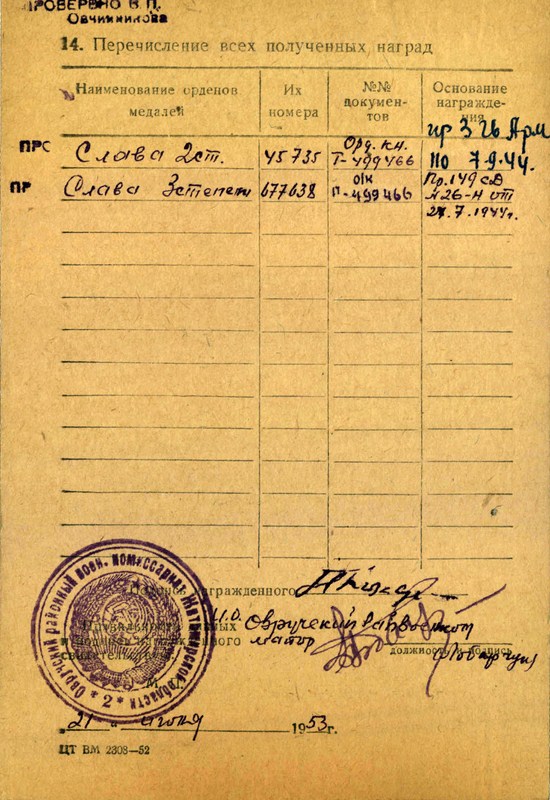 ПРОВЕРЕНО В П.
Овчинникова
14. Перечисление всех полученных наград
Наименование орденов медалей
Их номера
№№ документов
Основание награждения
пр 3 Гв Арм
ПРС Слава 2ст. 45735 Орд. кн. Т-499466 но 7.9.44.
ПР Слава 3степени 677638 о/к П-499466 Пр. 149 сд
№26-н от
27.7.1944г.
Подпись награжденного
И.О. Овручский Райвоенком
майор
должность и подпись
Овручский районный воен. комиссариат Житомирской области
* 2 *
"21" июня 1953г.
ЦТ ВМ 2308—52